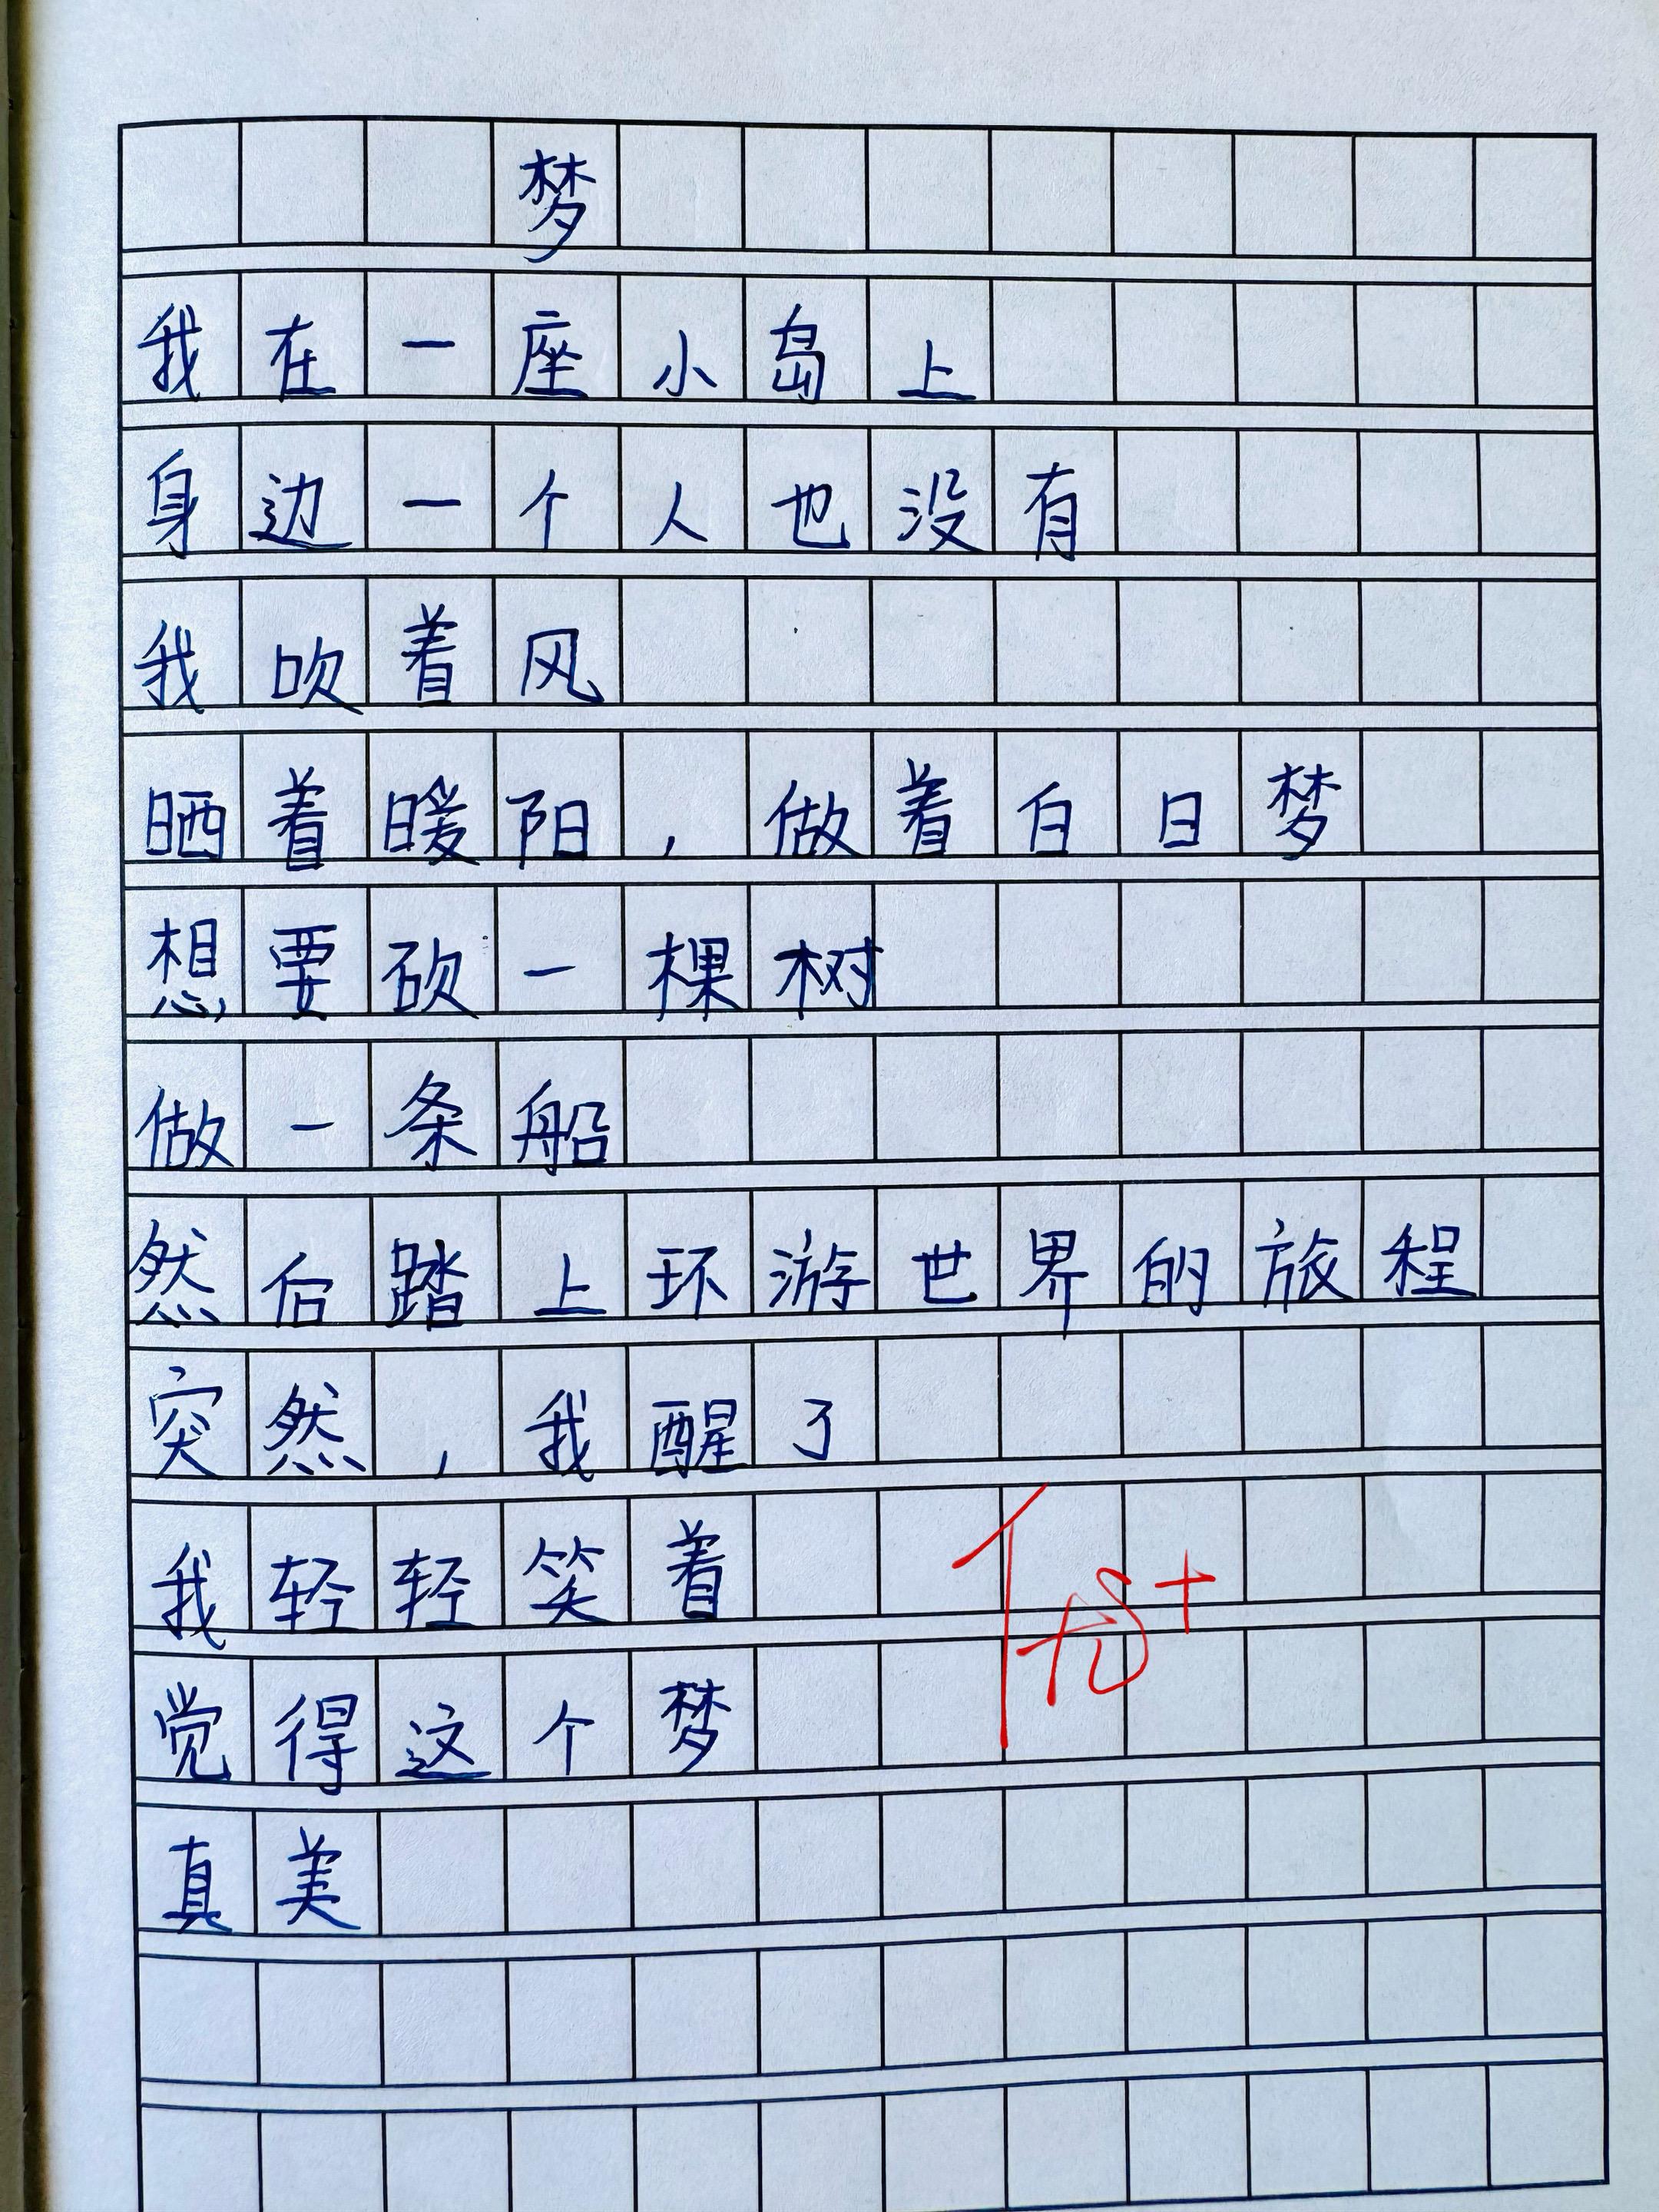 梦
我在一座小岛上
身边一个人也没有
我吹着风
晒着暖阳，做着白日梦
想要砍一棵树
做一条船
然后踏上环游世界的旅程
突然，我醒了
我轻轻笑着
优+
觉得这个梦
真美